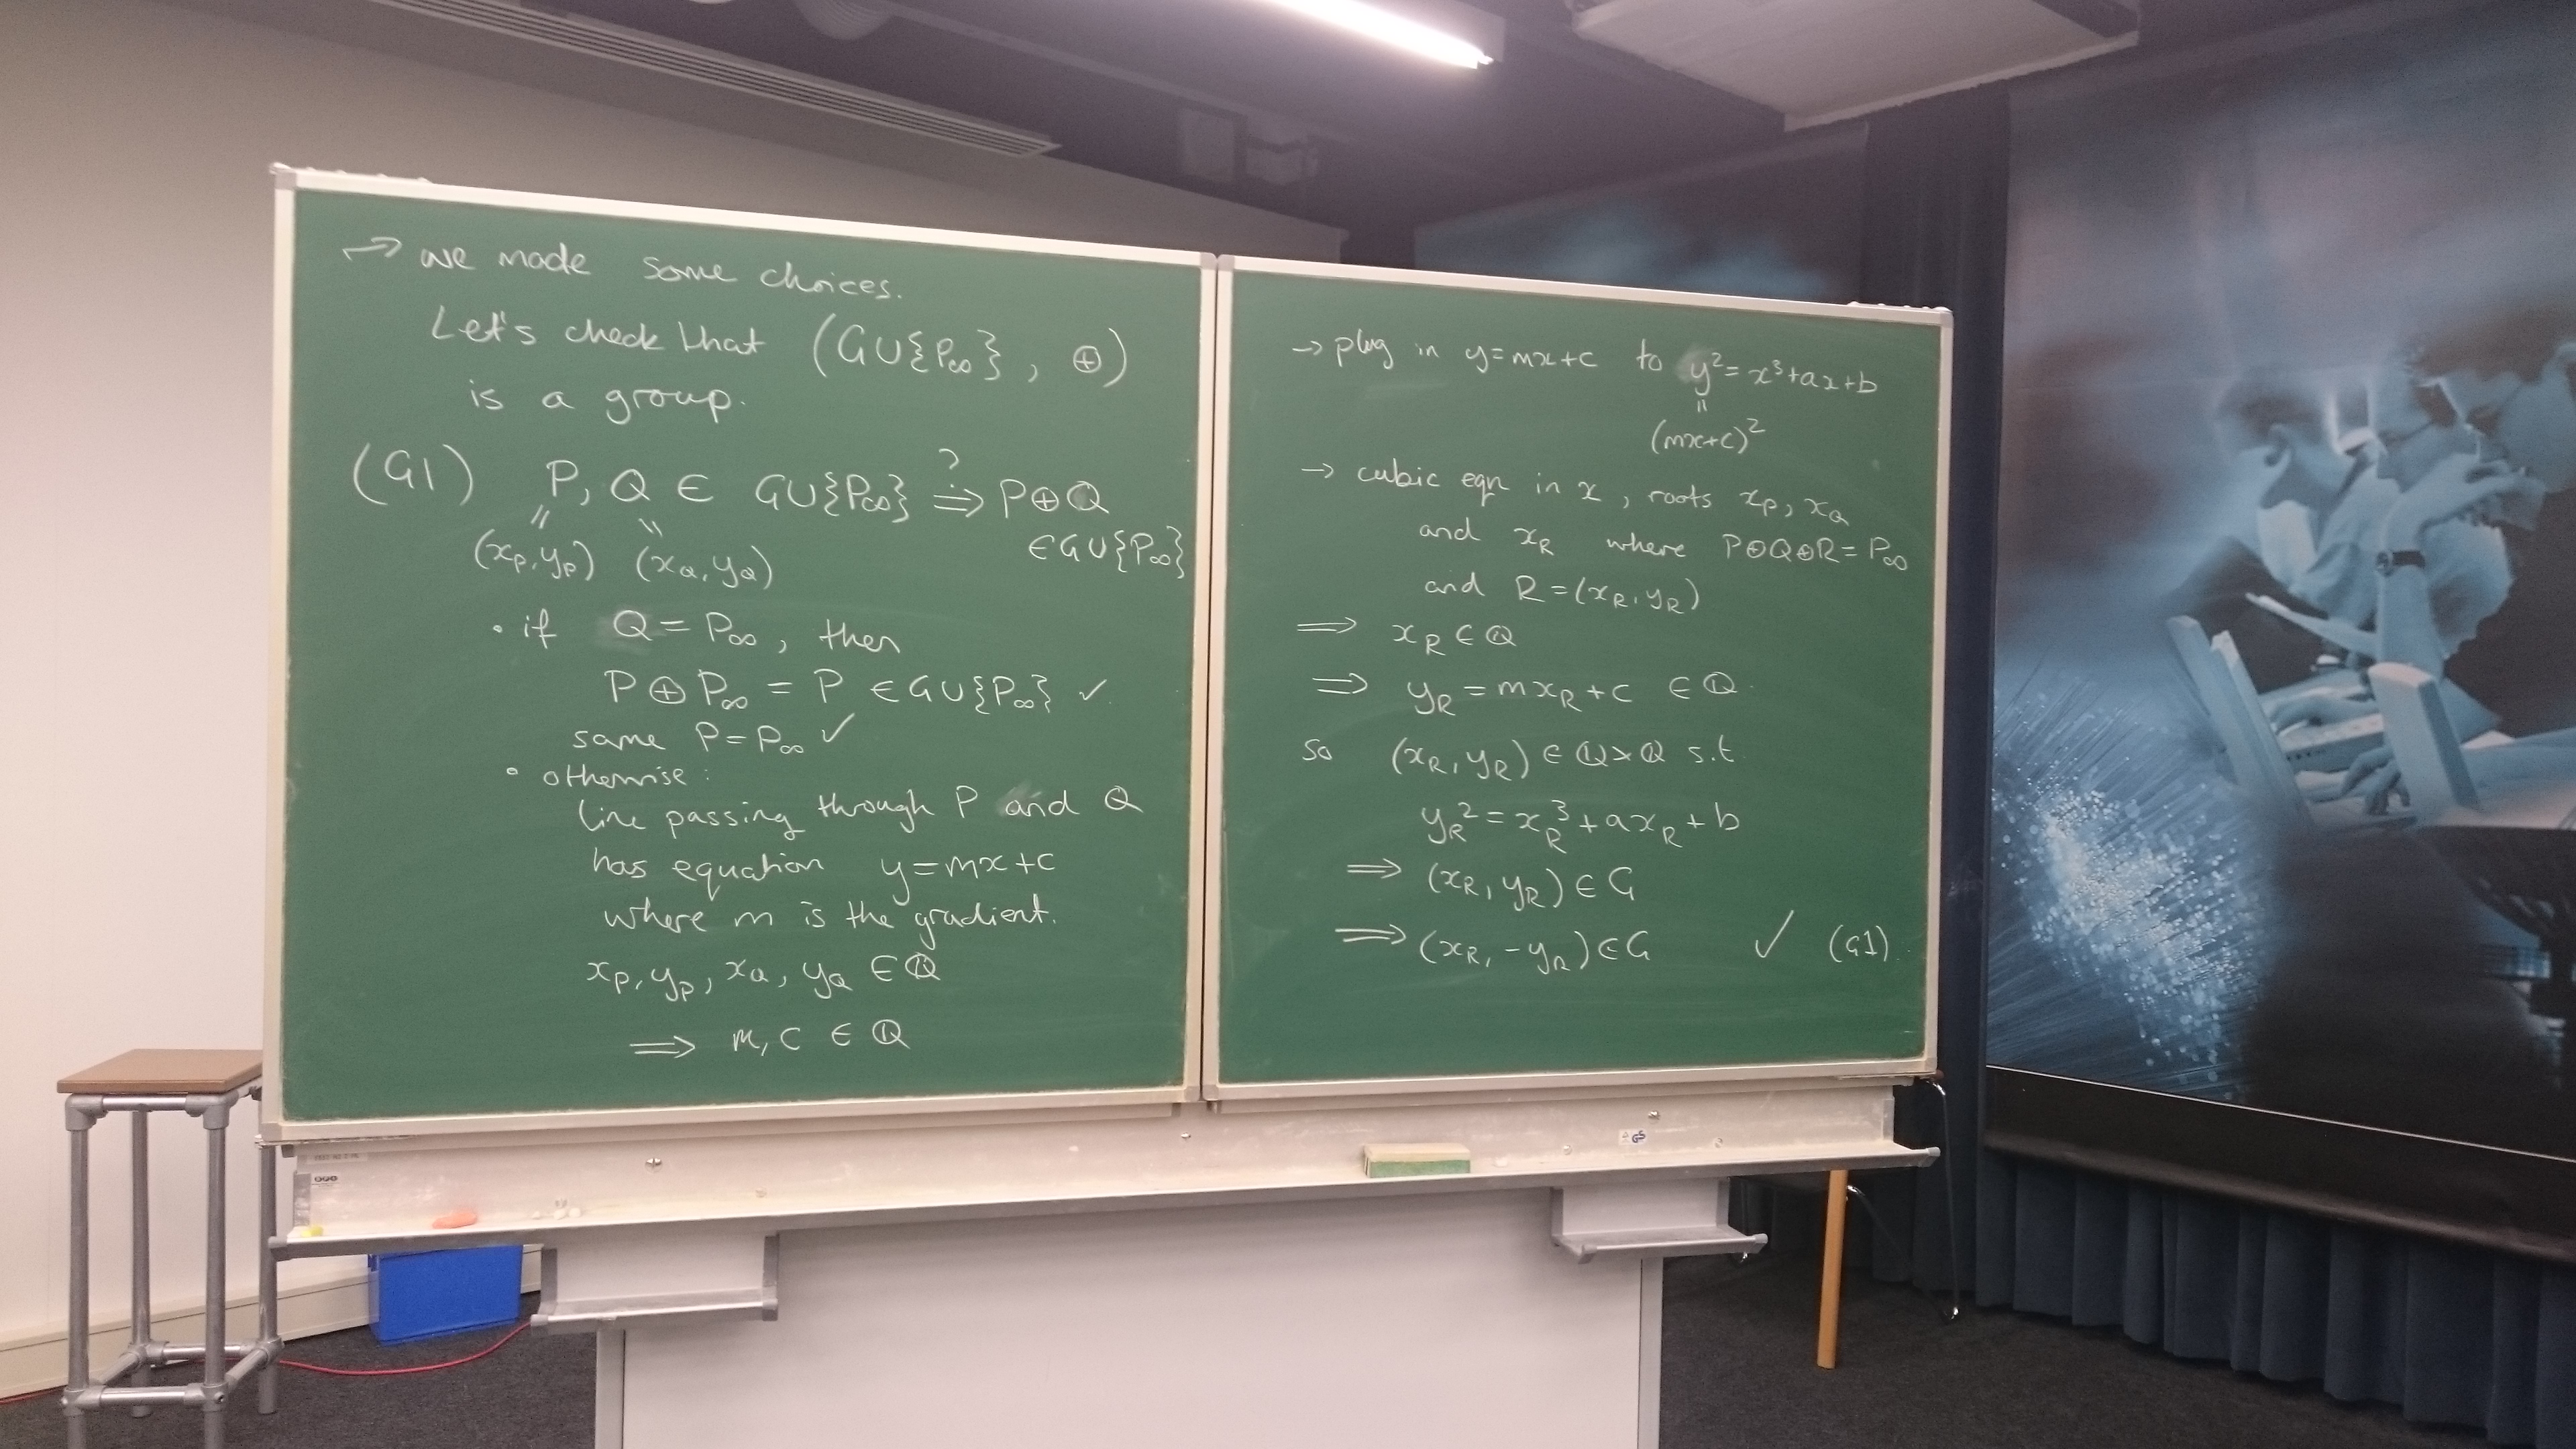 → we made some choices.
Let's check that (G∪{P∞}, ⊕)
is a group.
(G1) P, Q ∈ G∪{P∞} ?⟹ P⊕Q
∈G∪{P∞}
= =
(xP, yP) (xQ, yQ)
• if Q = P∞, then
P⊕P∞ = P ∈G∪{P∞} ✓
same P=P∞ ✓
• otherwise:
line passing through P and Q
has equation y=mx+c
where m is the gradient.
xP, yP, xQ, yQ ∈ ℚ
⟹ m, c ∈ ℚ
→ plug in y=mx+c to y²=x³+ax+b
=
(mx+c)²
→ cubic eqn in x, roots xP, xQ
and xR where P⊕Q⊕R=P∞
and R=(xR, yR)
⟹ xR ∈ ℚ
⟹ yR = mxR+c ∈ ℚ
so (xR, yR) ∈ ℚ×ℚ s.t.
yR²=xR³+axR+b
⟹ (xR, yR) ∈ G
⟹ (xR, -yR) ∈ G ✓ (G1).
GS